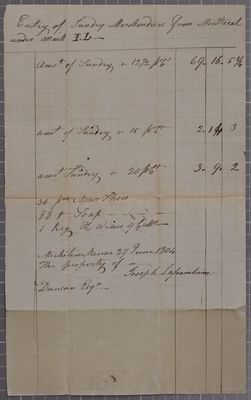 Entry of Sundry Merchandise from Montreal
under mark I.L
amt of Sundry a 12½ pCt 69.. 16.. 5
amt of Sundry a 15 pCt 2.. 14 3
amt Sundry a 20 pCt 3.. 9.. 2
36 pr Mens Shoes
88 # Soap
1 Keg Wine 9 Galls
Michilimackinac 27 June 1804
The property of
Joseph
Duncan Esqr